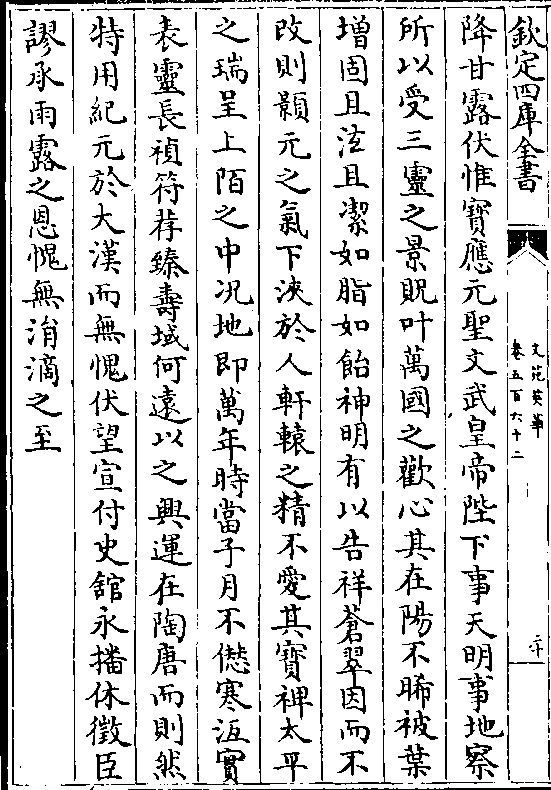 欽定四庫全書
文苑英華
卷五百六十二
二十
降甘露伏惟寳應元聖文武皇帝陛下事天明事地察
所以受三靈之景貺叶萬國之歡心其在陽不晞被葉
增固且泫且潔如脂如飴神明有以告祥蒼翠因而不
改則顥元之氣下浹於人軒轅之精不愛其寳禆太平
之瑞呈上陌之中况地即萬年時當子月不僽寒沍實
表靈長禎符荐臻壽域何遠以之興運在陶唐而則然
特用紀元於大漢而無愧伏望宣付史舘永播休徵臣
謬承雨露之恩愧無涓滴之至